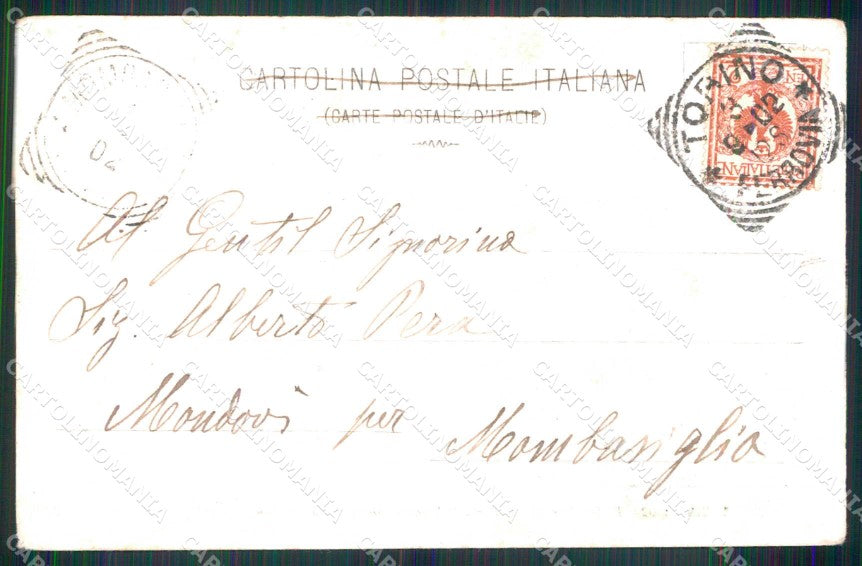 CARTOLINA POSTALE ITALIANA
(CARTE POSTALE D'ITALIE)
TORINO
* FERROVIA *
02
02
Al Gentil Signorina
Sig. Alberto Pera
Mondovì per Mombasiglio
CARTOLINOMANIA